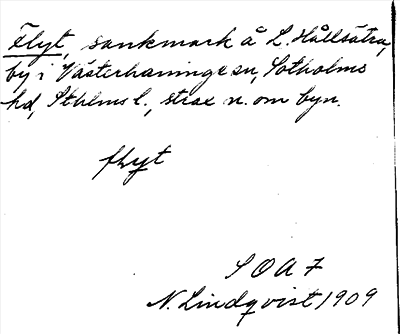 Flyt, sankmark å L. Hållsätra,
by i Västerhaninge sn, Sotholms
hd, Sthlms l., strax n. om byn.
flyt
S O A 7
N. Lindqvist 1909